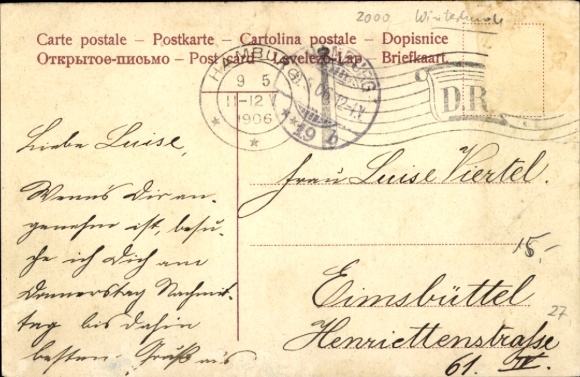 2000 Winterhude
Carte postale – Postkarte – Cartolina postale – Dopisnice
Открытое-письмо – Post card – Levelező-Lap. – Briefkaart.
HAMBURG
9 5
11-12 V
1906
* *
HAMBURG
*19 b
D.R.
Liebe Luise,
Wenn's Dir an-
genehm ist, besu-
che ich Dich am
Donnerstag Nachmit-
tag bis dahin
besten Gruß
Frau Luise Viertel.
15,-
Eimsbüttel
27
Henriettenstraße
61. IV.